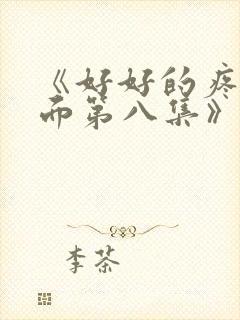 《好好的疼
而第八集》
李茶